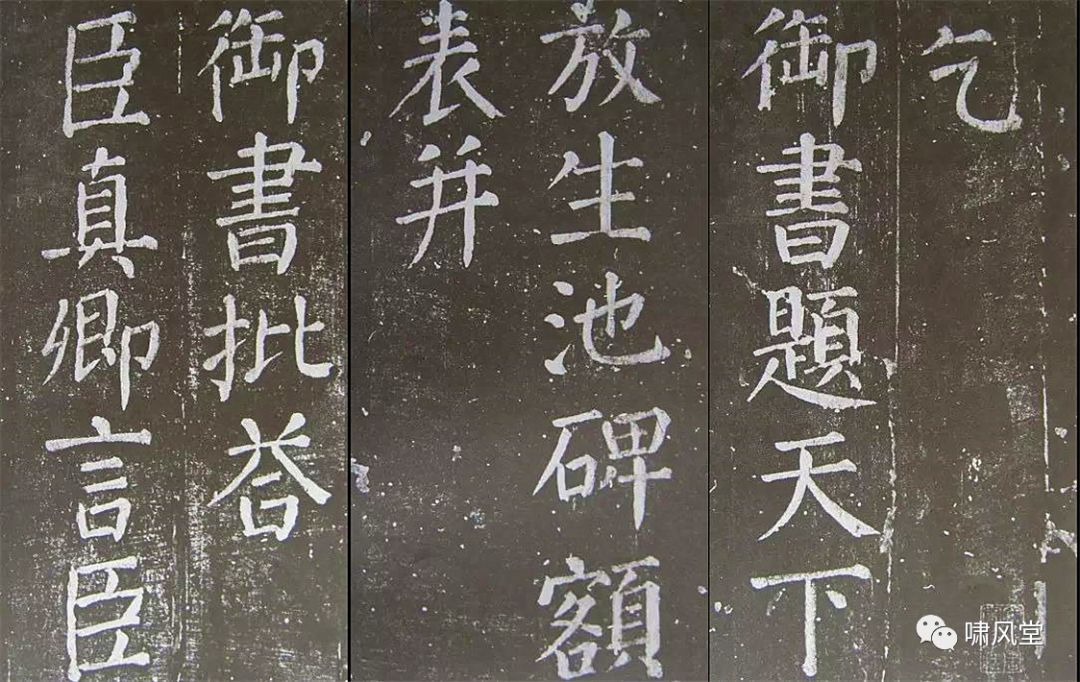 乞
御書題天下
放生池碑額
表并
御書批荅
臣真卿言臣
啸风堂